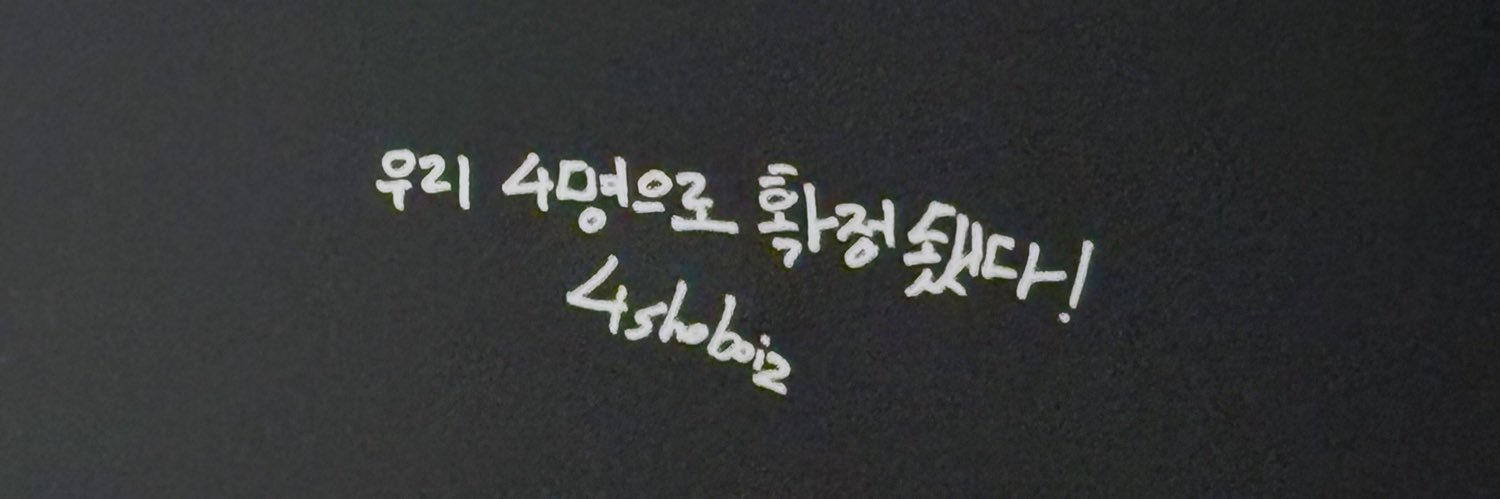 우리 4명으로 확정됐다!
4shoboiz